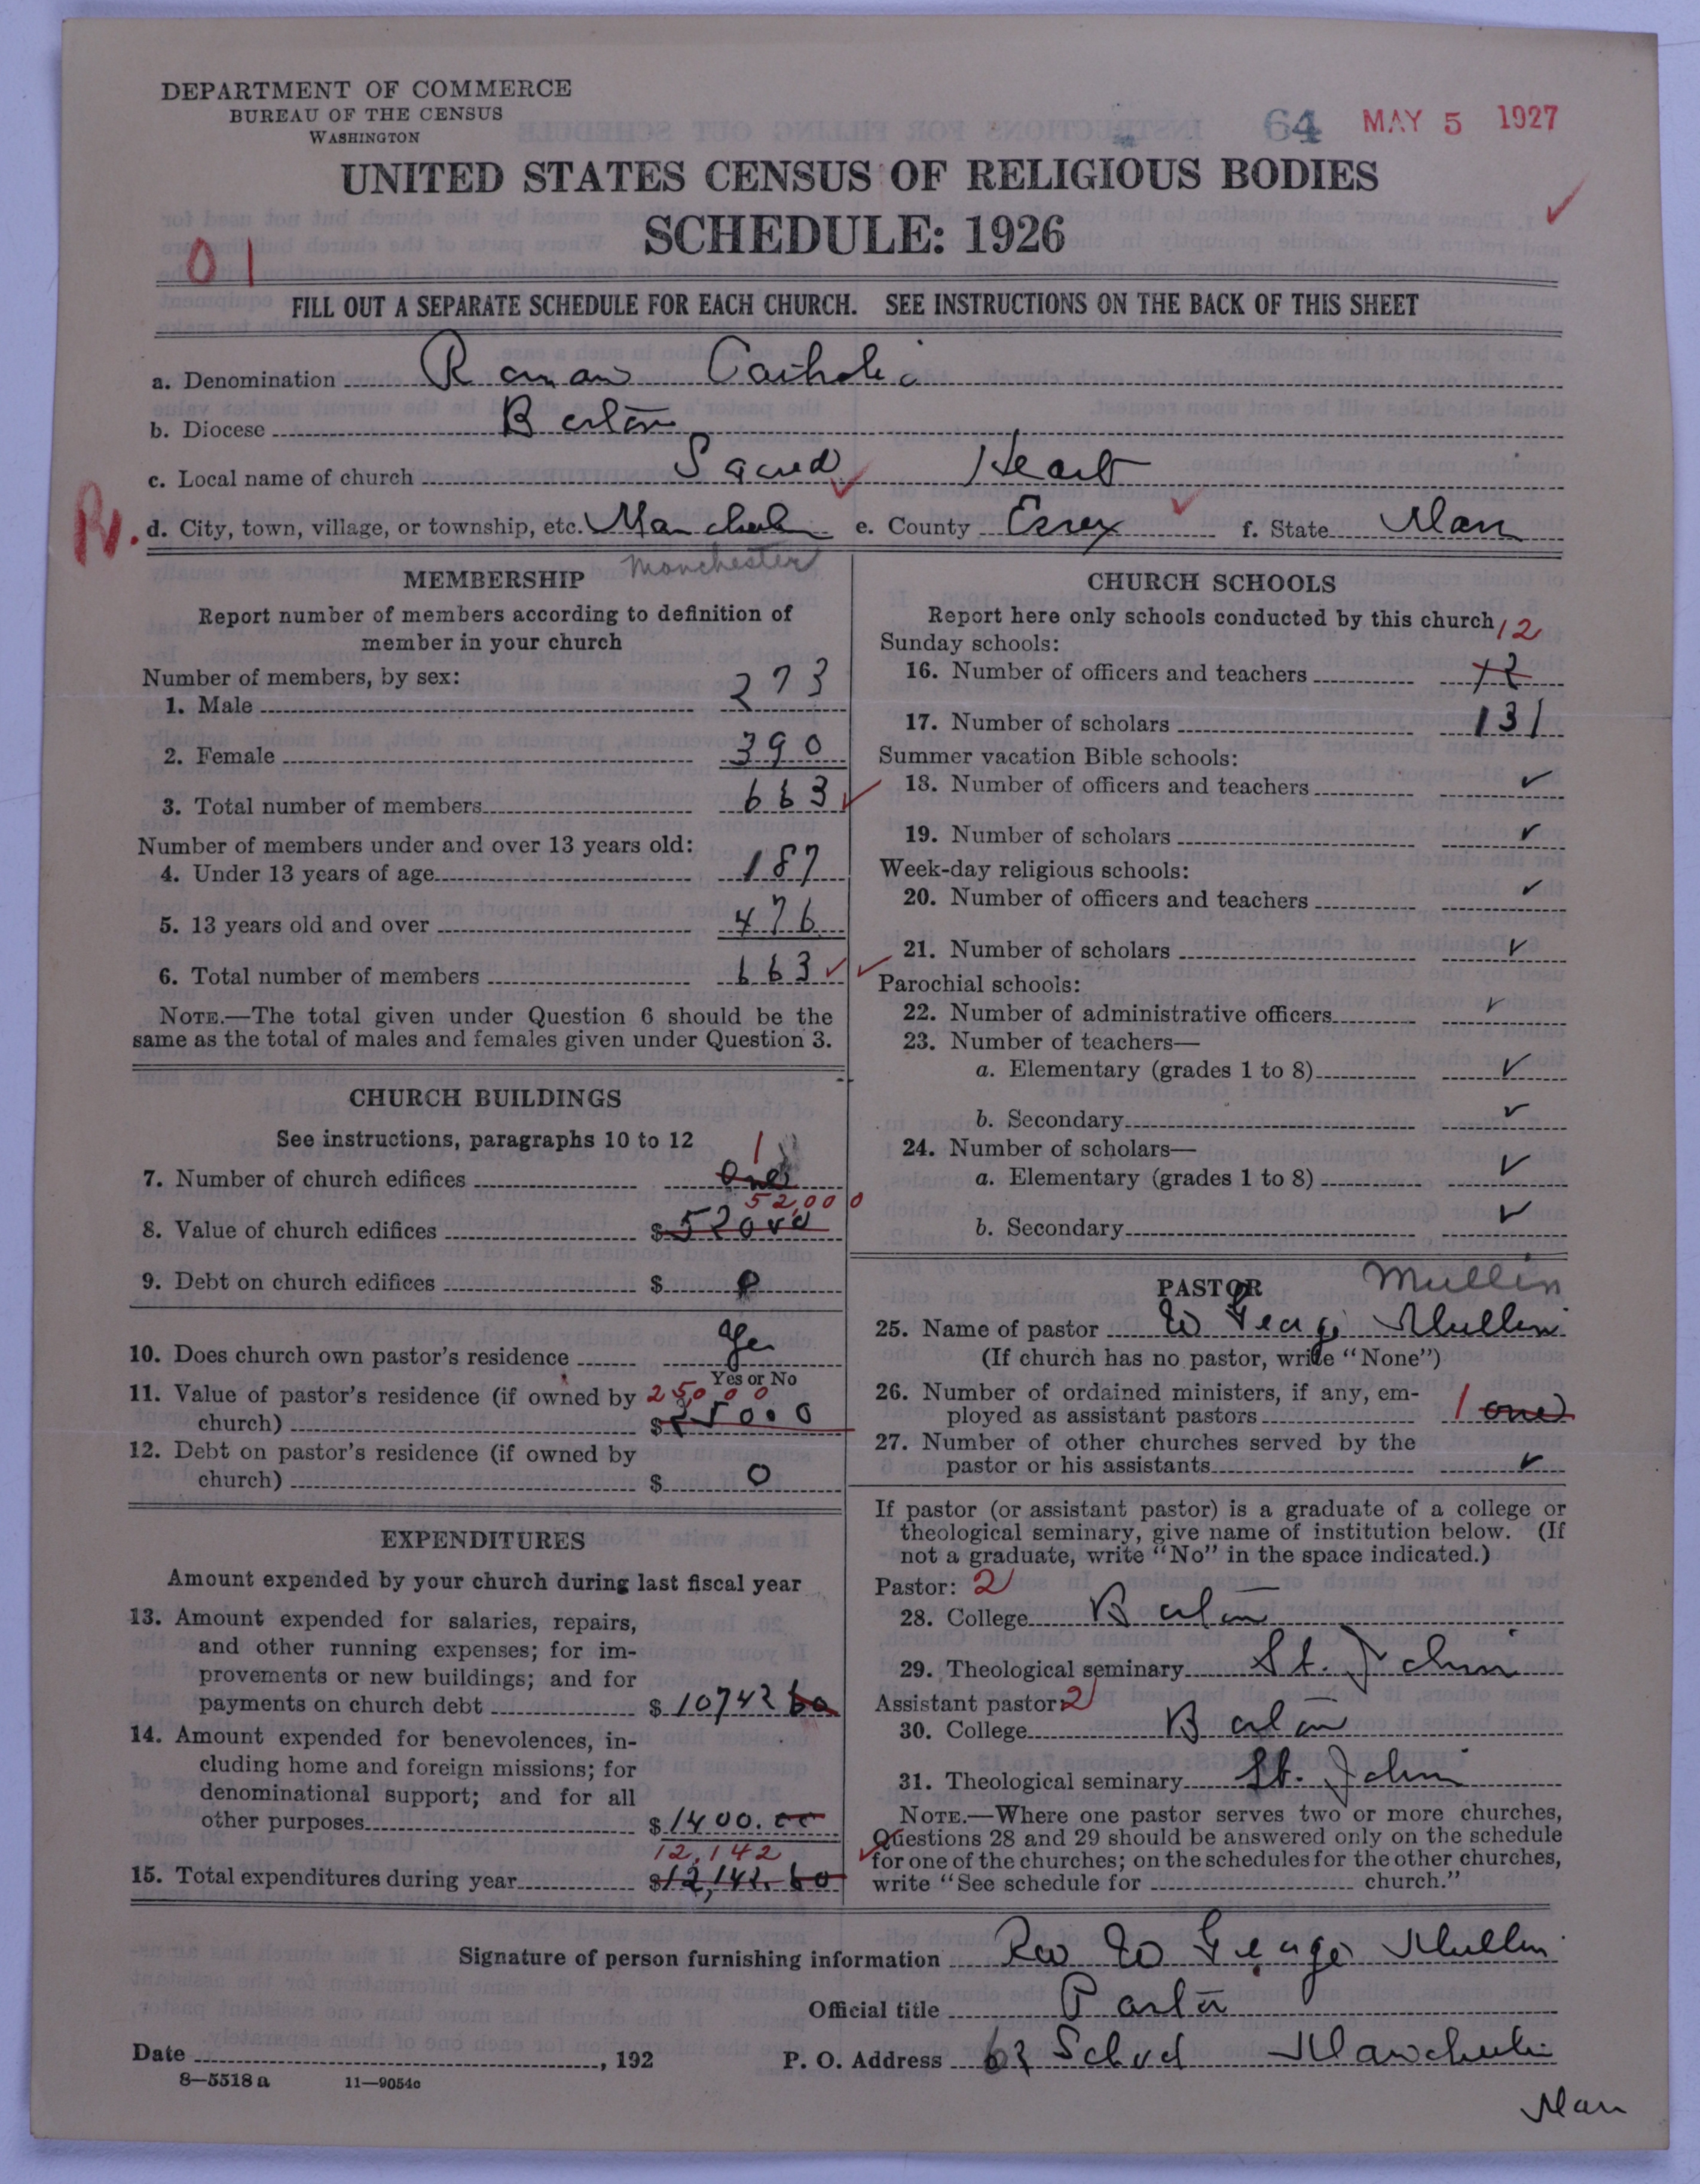 DEPARTMENT OF COMMERCE
BUREAU OF THE CENSUS
WASHINGTON
64 MAY 5 1927
UNITED STATES CENSUS OF RELIGIOUS BODIES
SCHEDULE: 1926
01
FILL OUT A SEPARATE SCHEDULE FOR EACH CHURCH. SEE INSTRUCTIONS ON THE BACK OF THIS SHEET
a. Denomination Roman Catholic
b. Diocese Boston
c. Local name of church Sacred Heart
d. City, town, village, or township, etc. Manchester e. County Essex f. State Mass
Manchester
MEMBERSHIP
Report number of members according to definition of
member in your church
Number of members, by sex:
1. Male 273
2. Female 390
3. Total number of members 663
Number of members under and over 13 years old:
4. Under 13 years of age 187
5. 13 years old and over 476
6. Total number of members 663
NOTE.—The total given under Question 6 should be the
same as the total of males and females given under Question 3.
CHURCH BUILDINGS
See instructions, paragraphs 10 to 12
1
7. Number of church edifices one
52,000
8. Value of church edifices $52000
9. Debt on church edifices $ 0
10. Does church own pastor's residence Yes
Yes or No
11. Value of pastor's residence (if owned by 25000
church) $25000
12. Debt on pastor's residence (if owned by
church) $ 0
EXPENDITURES
Amount expended by your church during last fiscal year
13. Amount expended for salaries, repairs,
and other running expenses; for im-
provements or new buildings; and for
payments on church debt $10742 60
14. Amount expended for benevolences, in-
cluding home and foreign missions; for
denominational support; and for all
other purposes $1400.00
12,142
15. Total expenditures during year $12,142.60
CHURCH SCHOOLS
Report here only schools conducted by this church
12
Sunday schools:
16. Number of officers and teachers 12
17. Number of scholars 131
Summer vacation Bible schools:
18. Number of officers and teachers ✓
19. Number of scholars ✓
Week-day religious schools:
20. Number of officers and teachers ✓
21. Number of scholars ✓
Parochial schools:
22. Number of administrative officers ✓
23. Number of teachers—
a. Elementary (grades 1 to 8) ✓
b. Secondary ✓
24. Number of scholars—
a. Elementary (grades 1 to 8) ✓
b. Secondary ✓
PASTOR Mullin
25. Name of pastor W George Mullin
(If church has no pastor, write "None")
26. Number of ordained ministers, if any, em-
ployed as assistant pastors 1 one
27. Number of other churches served by the
pastor or his assistants ✓
If pastor (or assistant pastor) is a graduate of a college or
theological seminary, give name of institution below. (If
not a graduate, write "No" in the space indicated.)
Pastor: 2
28. College Boston
29. Theological seminary St. John
Assistant pastor: 2
30. College Boston
31. Theological seminary St. John
NOTE.—Where one pastor serves two or more churches,
Questions 28 and 29 should be answered only on the schedule
for one of the churches; on the schedules for the other churches,
write "See schedule for church."
Signature of person furnishing information Rev W George Mullin
Official title Pastor
Date , 192 P. O. Address 62 School Manchester
8—5518 a 11—9054c
Mass